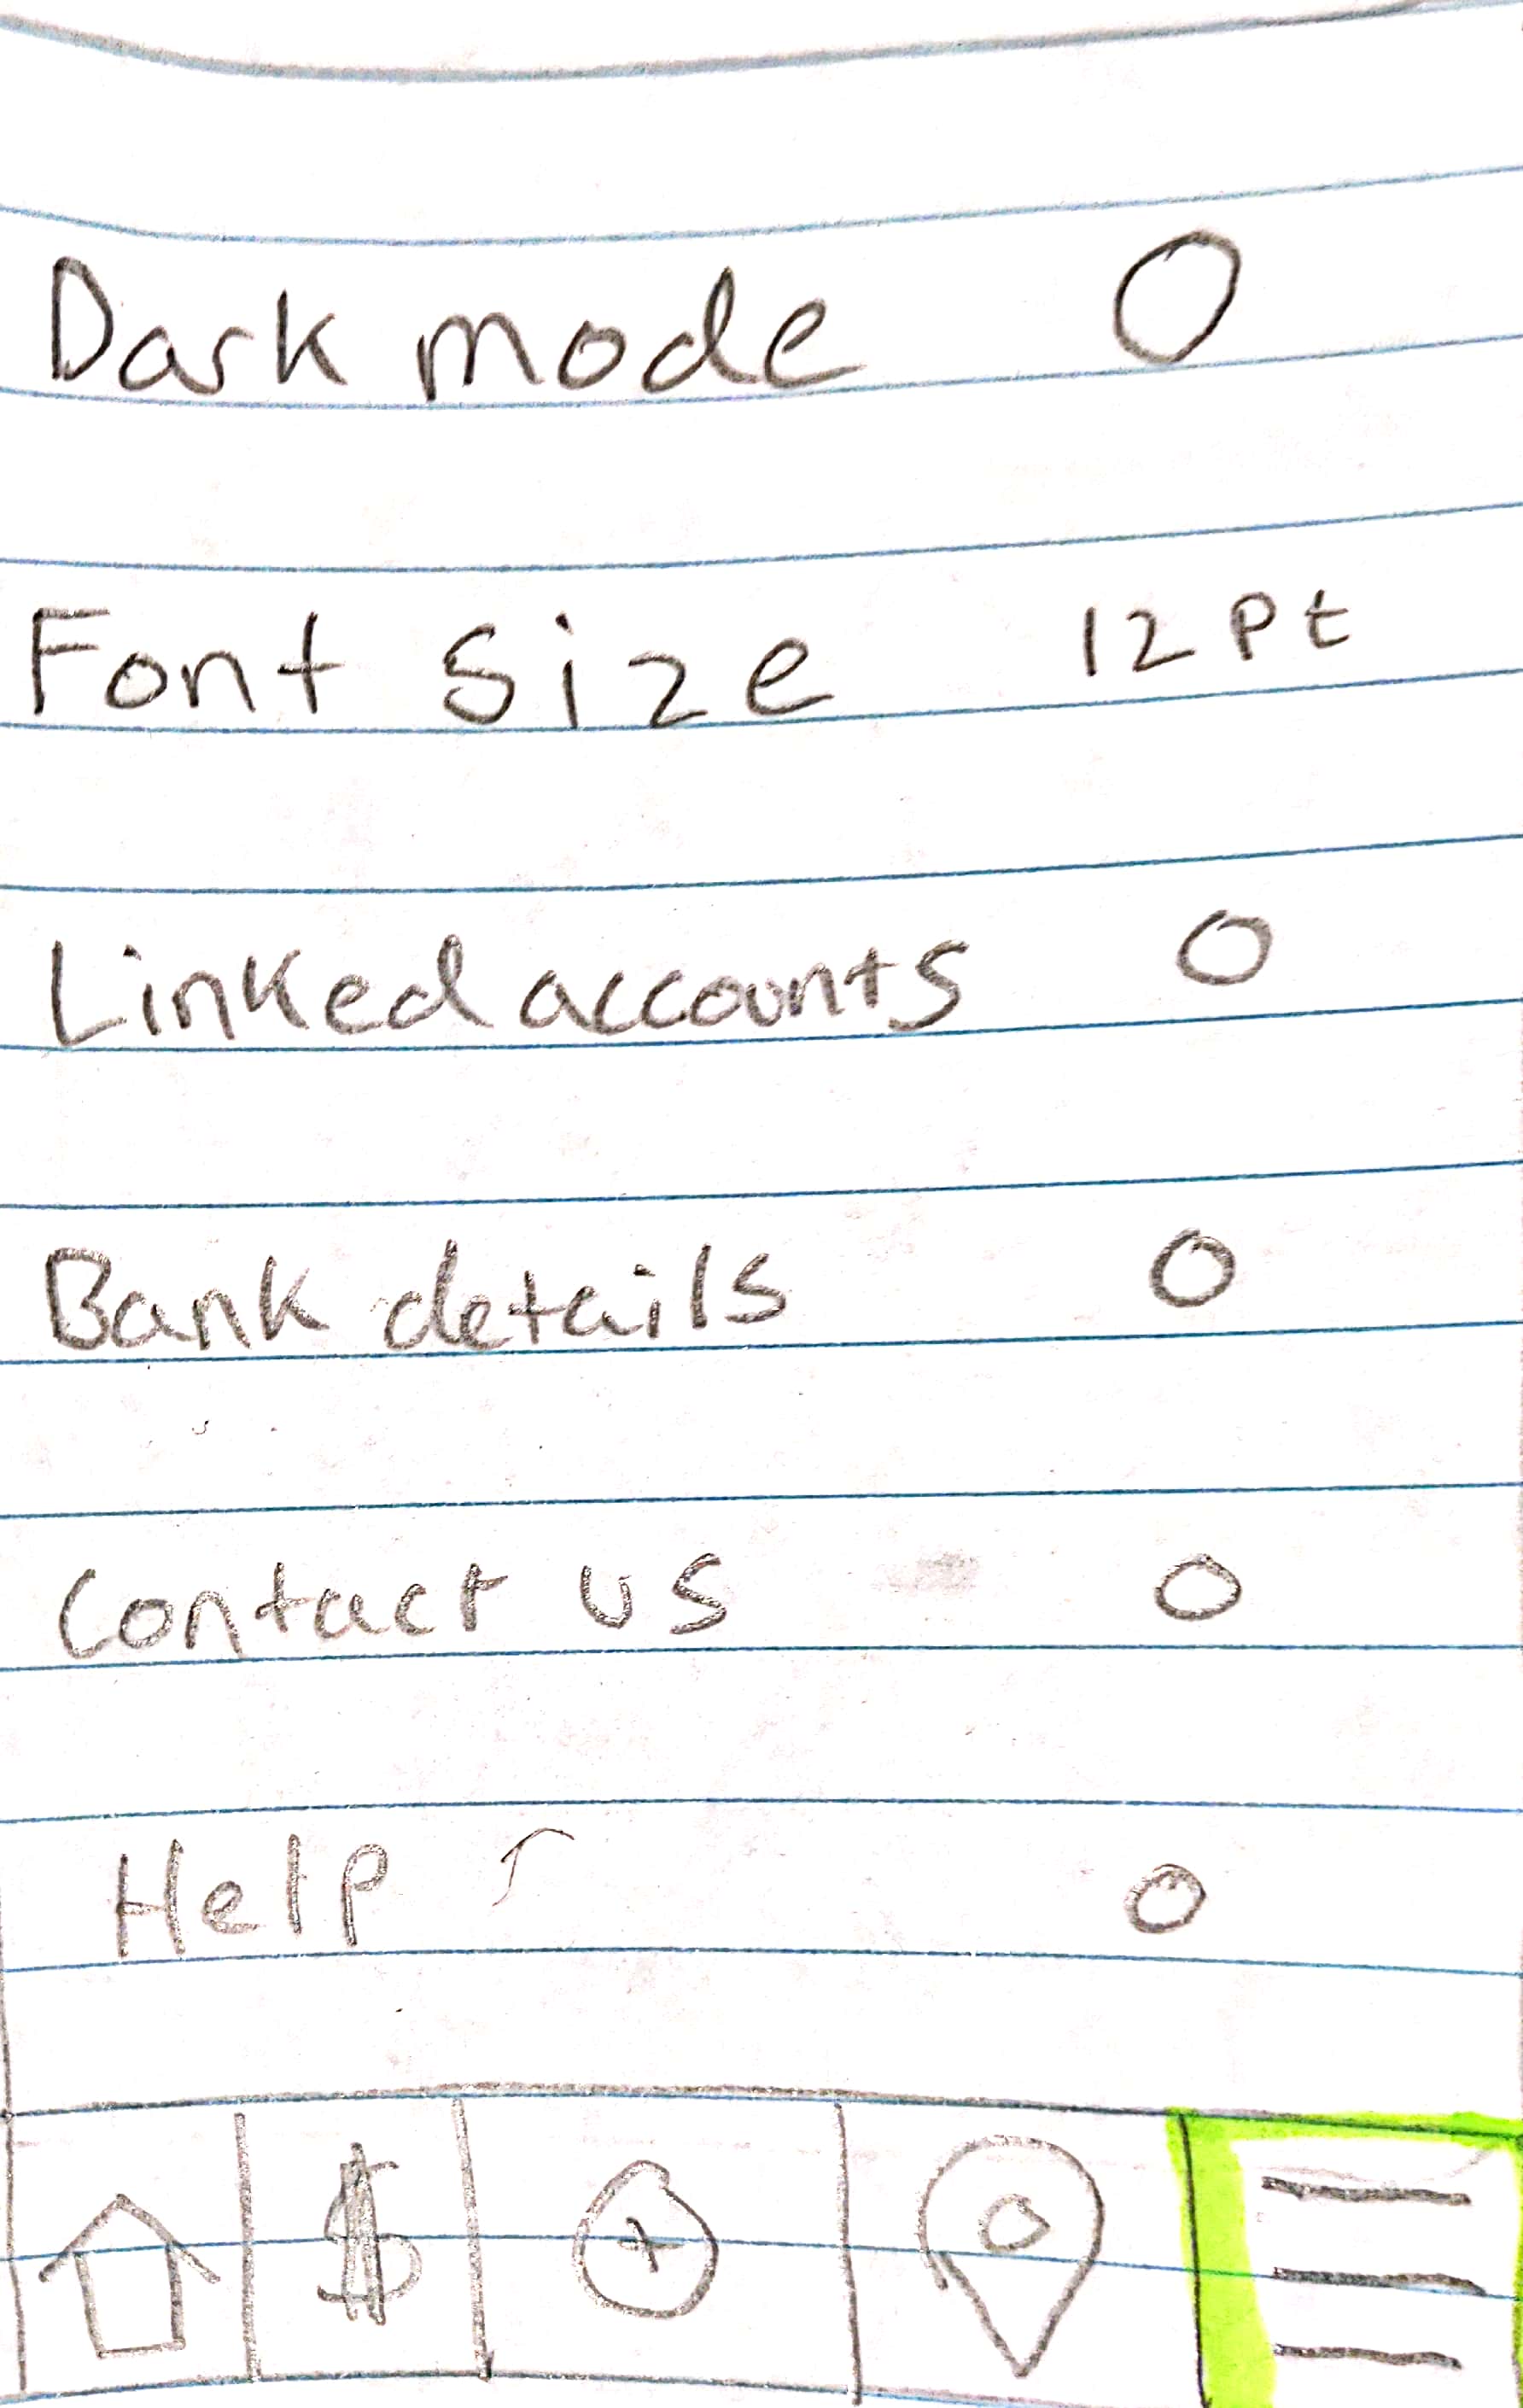 Dark mode
Font size 12 pt
Linked accounts
Bank details
Contact us
Help
$